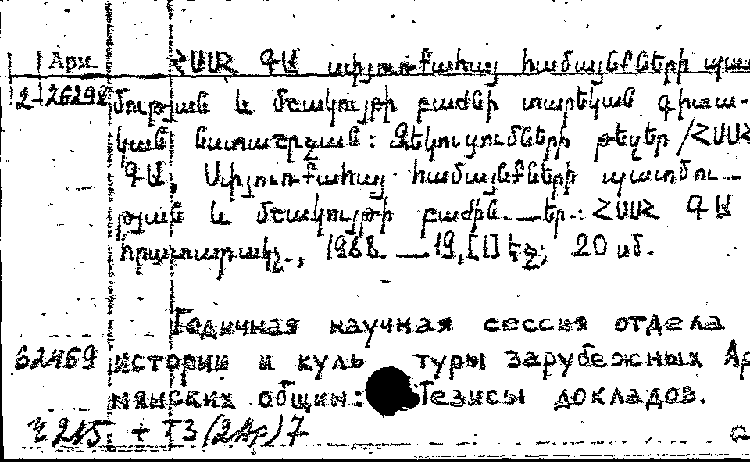 Арм. ՀՍՍՀ ԳԱ սփյուռքահայ համայնքների պատ
2-26298 մության և մշակույթի բաժնի տարեկան գիտա-
կան նստաշրջան: Զեկուցումների թեզեր /ՀՍՍՀ
ԳԱ, Սփյուռքահայ համայնքների պատմու-
թյան և մշակույթի բաժին. եր.: ՀՍՍՀ ԳԱ
հրատարակչ., 1988. — 19,[1] էջ; 20 սմ.
Годичная научная сессия отдела
62469 истории и куль туры зарубежных Ар
мянских общин: Тезисы докладов.
215 + Т3(2Ар)7